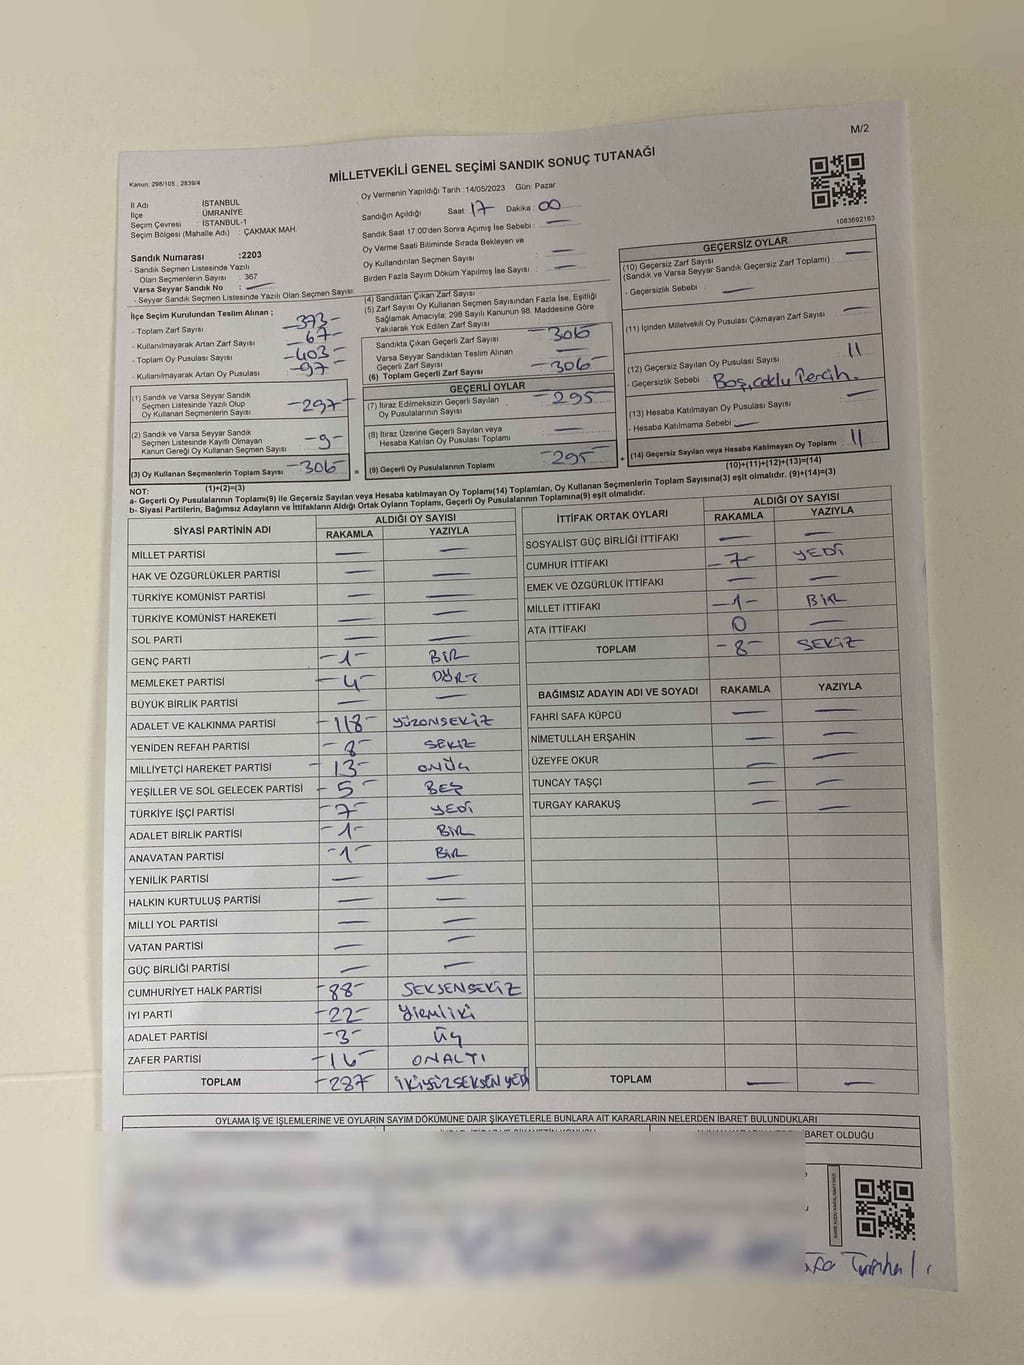 M/2
MİLLETVEKİLİ GENEL SEÇİMİ SANDIK SONUÇ TUTANAĞI
Kanun: 298/105 , 2839/4
İl Adı : İSTANBUL
İlçe : ÜMRANİYE
Seçim Çevresi : İSTANBUL-1
Seçim Bölgesi (Mahalle Adı) : ÇAKMAK MAH.
Sandık Numarası :2203
- Sandık Seçmen Listesinde Yazılı
Olan Seçmenlerin Sayısı : 367
Varsa Seyyar Sandık No : —
- Seyyar Sandık Seçmen Listesinde Yazılı Olan Seçmen Sayısı:
Oy Vermenin Yapıldığı Tarih :14/05/2023 Gün: Pazar
Sandığın Açıldığı Saat 17 Dakika 00
Sandık Saat 17:00'den Sonra Açılmış İse Sebebi : —
Oy Verme Saati Bitiminde Sırada Bekleyen ve
Oy Kullandırılan Seçmen Sayısı : —
Birden Fazla Sayım Döküm Yapılmış İse Sayısı : —
1083692163
İlçe Seçim Kurulundan Teslim Alınan ;
- Toplam Zarf Sayısı -373-
- Kullanılmayarak Artan Zarf Sayısı -67-
- Toplam Oy Pusulası Sayısı -403-
- Kullanılmayarak Artan Oy Pusulası -97-
(1) Sandık ve Varsa Seyyar Sandık
Seçmen Listesinde Yazılı Olup
Oy Kullanan Seçmenlerin Sayısı -297-
(2) Sandık ve Varsa Seyyar Sandık
Seçmen Listesinde Kayıtlı Olmayan
Kanun Gereği Oy Kullanan Seçmen Sayısı -9-
(3) Oy Kullanan Seçmenlerin Toplam Sayısı -306-
(1)+(2)=(3)
(4) Sandıktan Çıkan Zarf Sayısı
(5) Zarf Sayısı Oy Kullanan Seçmen Sayısından Fazla İse, Eşitliği
Sağlamak Amacıyla; 298 Sayılı Kanunun 98. Maddesine Göre
Yakılarak Yok Edilen Zarf Sayısı
Sandıkta Çıkan Geçerli Zarf Sayısı -306-
Varsa Seyyar Sandıktan Teslim Alınan
Geçerli Zarf Sayısı —
(6) Toplam Geçerli Zarf Sayısı -306-
GEÇERLİ OYLAR
(7) İtiraz Edilmeksizin Geçerli Sayılan
Oy Pusulalarının Sayısı -295-
(8) İtiraz Üzerine Geçerli Sayılan veya
Hesaba Katılan Oy Pusulası Toplamı —
= (9) Geçerli Oy Pusulalarının Toplamı -295-
GEÇERSİZ OYLAR
(10) Geçersiz Zarf Sayısı
(Sandık ve Varsa Seyyar Sandık Geçersiz Zarf Toplamı) : —
- Geçersizlik Sebebi : —
(11) İçinden Milletvekili Oy Pusulası Çıkmayan Zarf Sayısı —
(12) Geçersiz Sayılan Oy Pusulası Sayısı 11
- Geçersizlik Sebebi : Boş, çoklu Tercih.
(13) Hesaba Katılmayan Oy Pusulası Sayısı —
- Hesaba Katılmama Sebebi : —
+ (14) Geçersiz Sayılan veya Hesaba Katılmayan Oy Toplamı 11
(10)+(11)+(12)+(13)=(14)
NOT:
a- Geçerli Oy Pusulalarının Toplamı(9) ile Geçersiz Sayılan veya Hesaba katılmayan Oy Toplamı(14) Toplamları, Oy Kullanan Seçmenlerin Toplam Sayısına(3) eşit olmalıdır. (9)+(14)=(3)
b- Siyasi Partilerin, Bağımsız Adayların ve İttifakların Aldığı Ortak Oyların Toplamı, Geçerli Oy Pusulalarının Toplamına(9) eşit olmalıdır.
SİYASİ PARTİNİN ADI ALDIĞI OY SAYISI
RAKAMLA YAZIYLA
MİLLET PARTİSİ — —
HAK VE ÖZGÜRLÜKLER PARTİSİ — —
TÜRKİYE KOMÜNİST PARTİSİ — —
TÜRKİYE KOMÜNİST HAREKETİ — —
SOL PARTİ — —
GENÇ PARTİ -1- BİR
MEMLEKET PARTİSİ -4- DÖRT
BÜYÜK BİRLİK PARTİSİ — —
ADALET VE KALKINMA PARTİSİ -118- YÜZONSEKİZ
YENİDEN REFAH PARTİSİ -8- SEKİZ
MİLLİYETÇİ HAREKET PARTİSİ -13- ONÜÇ
YEŞİLLER VE SOL GELECEK PARTİSİ -5- BEŞ
TÜRKİYE İŞÇİ PARTİSİ -7- YEDİ
ADALET BİRLİK PARTİSİ -1- BİR
ANAVATAN PARTİSİ -1- BİR
YENİLİK PARTİSİ — —
HALKIN KURTULUŞ PARTİSİ — —
MİLLİ YOL PARTİSİ — —
VATAN PARTİSİ — —
GÜÇ BİRLİĞİ PARTİSİ — —
CUMHURİYET HALK PARTİSİ -88- SEKSENSEKİZ
İYİ PARTİ -22- YİRMİİKİ
ADALET PARTİSİ -3- ÜÇ
ZAFER PARTİSİ -16- ONALTI
TOPLAM -287- İKİYÜZSEKSENYEDİ
İTTİFAK ORTAK OYLARI ALDIĞI OY SAYISI
RAKAMLA YAZIYLA
SOSYALİST GÜÇ BİRLİĞİ İTTİFAKI — —
CUMHUR İTTİFAKI -7- YEDİ
EMEK VE ÖZGÜRLÜK İTTİFAKI — —
MİLLET İTTİFAKI -1- BİR
ATA İTTİFAKI 0 —
TOPLAM -8- SEKİZ
BAĞIMSIZ ADAYIN ADI VE SOYADI RAKAMLA YAZIYLA
FAHRİ SAFA KÜPCÜ — —
NİMETULLAH ERŞAHİN — —
ÜZEYFE OKUR — —
TUNCAY TAŞÇI — —
TURGAY KARAKUŞ — —
TOPLAM — —
OYLAMA İŞ VE İŞLEMLERİNE VE OYLARIN SAYIM DÖKÜMÜNE DAİR ŞİKAYETLERLE BUNLARA AİT KARARLARIN NELERDEN İBARET BULUNDUKLARI
İBARET OLDUĞU